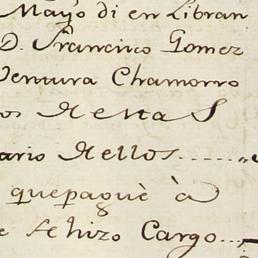 Mayo di en Libran
D. Francisco Gomez
Ventura Chamorro
os Renta S
ario Rellos......
quepaguè à
e se hizo Cargo...